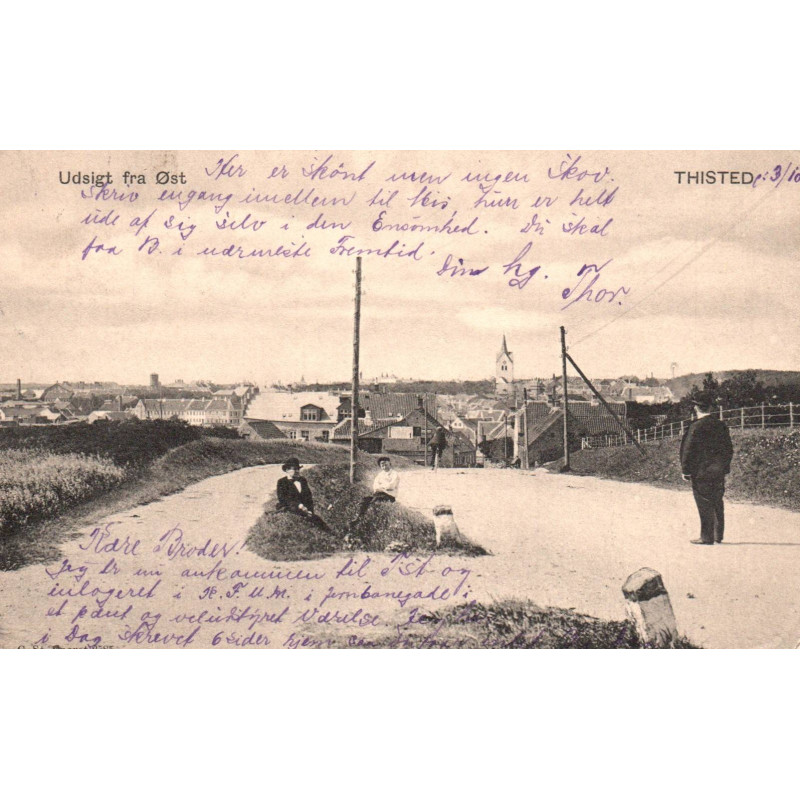 Udsigt fra Øst
THISTED
3/10
Her er skønt men ingen Skov.
Skriv engang imellem til Mis, hun er helt
ude af sig selv i den Ensomhed. Du skal
faa B. i nærmeste Fremtid.
Din hg. Thor.
Kære Broder!
Jeg er nu ankommen til Tst og
inlogeret i K.F.U.M. i Jernbanegade i
et pænt og veludstyret Værelse.
i Dag skrevet 6 sider hjem